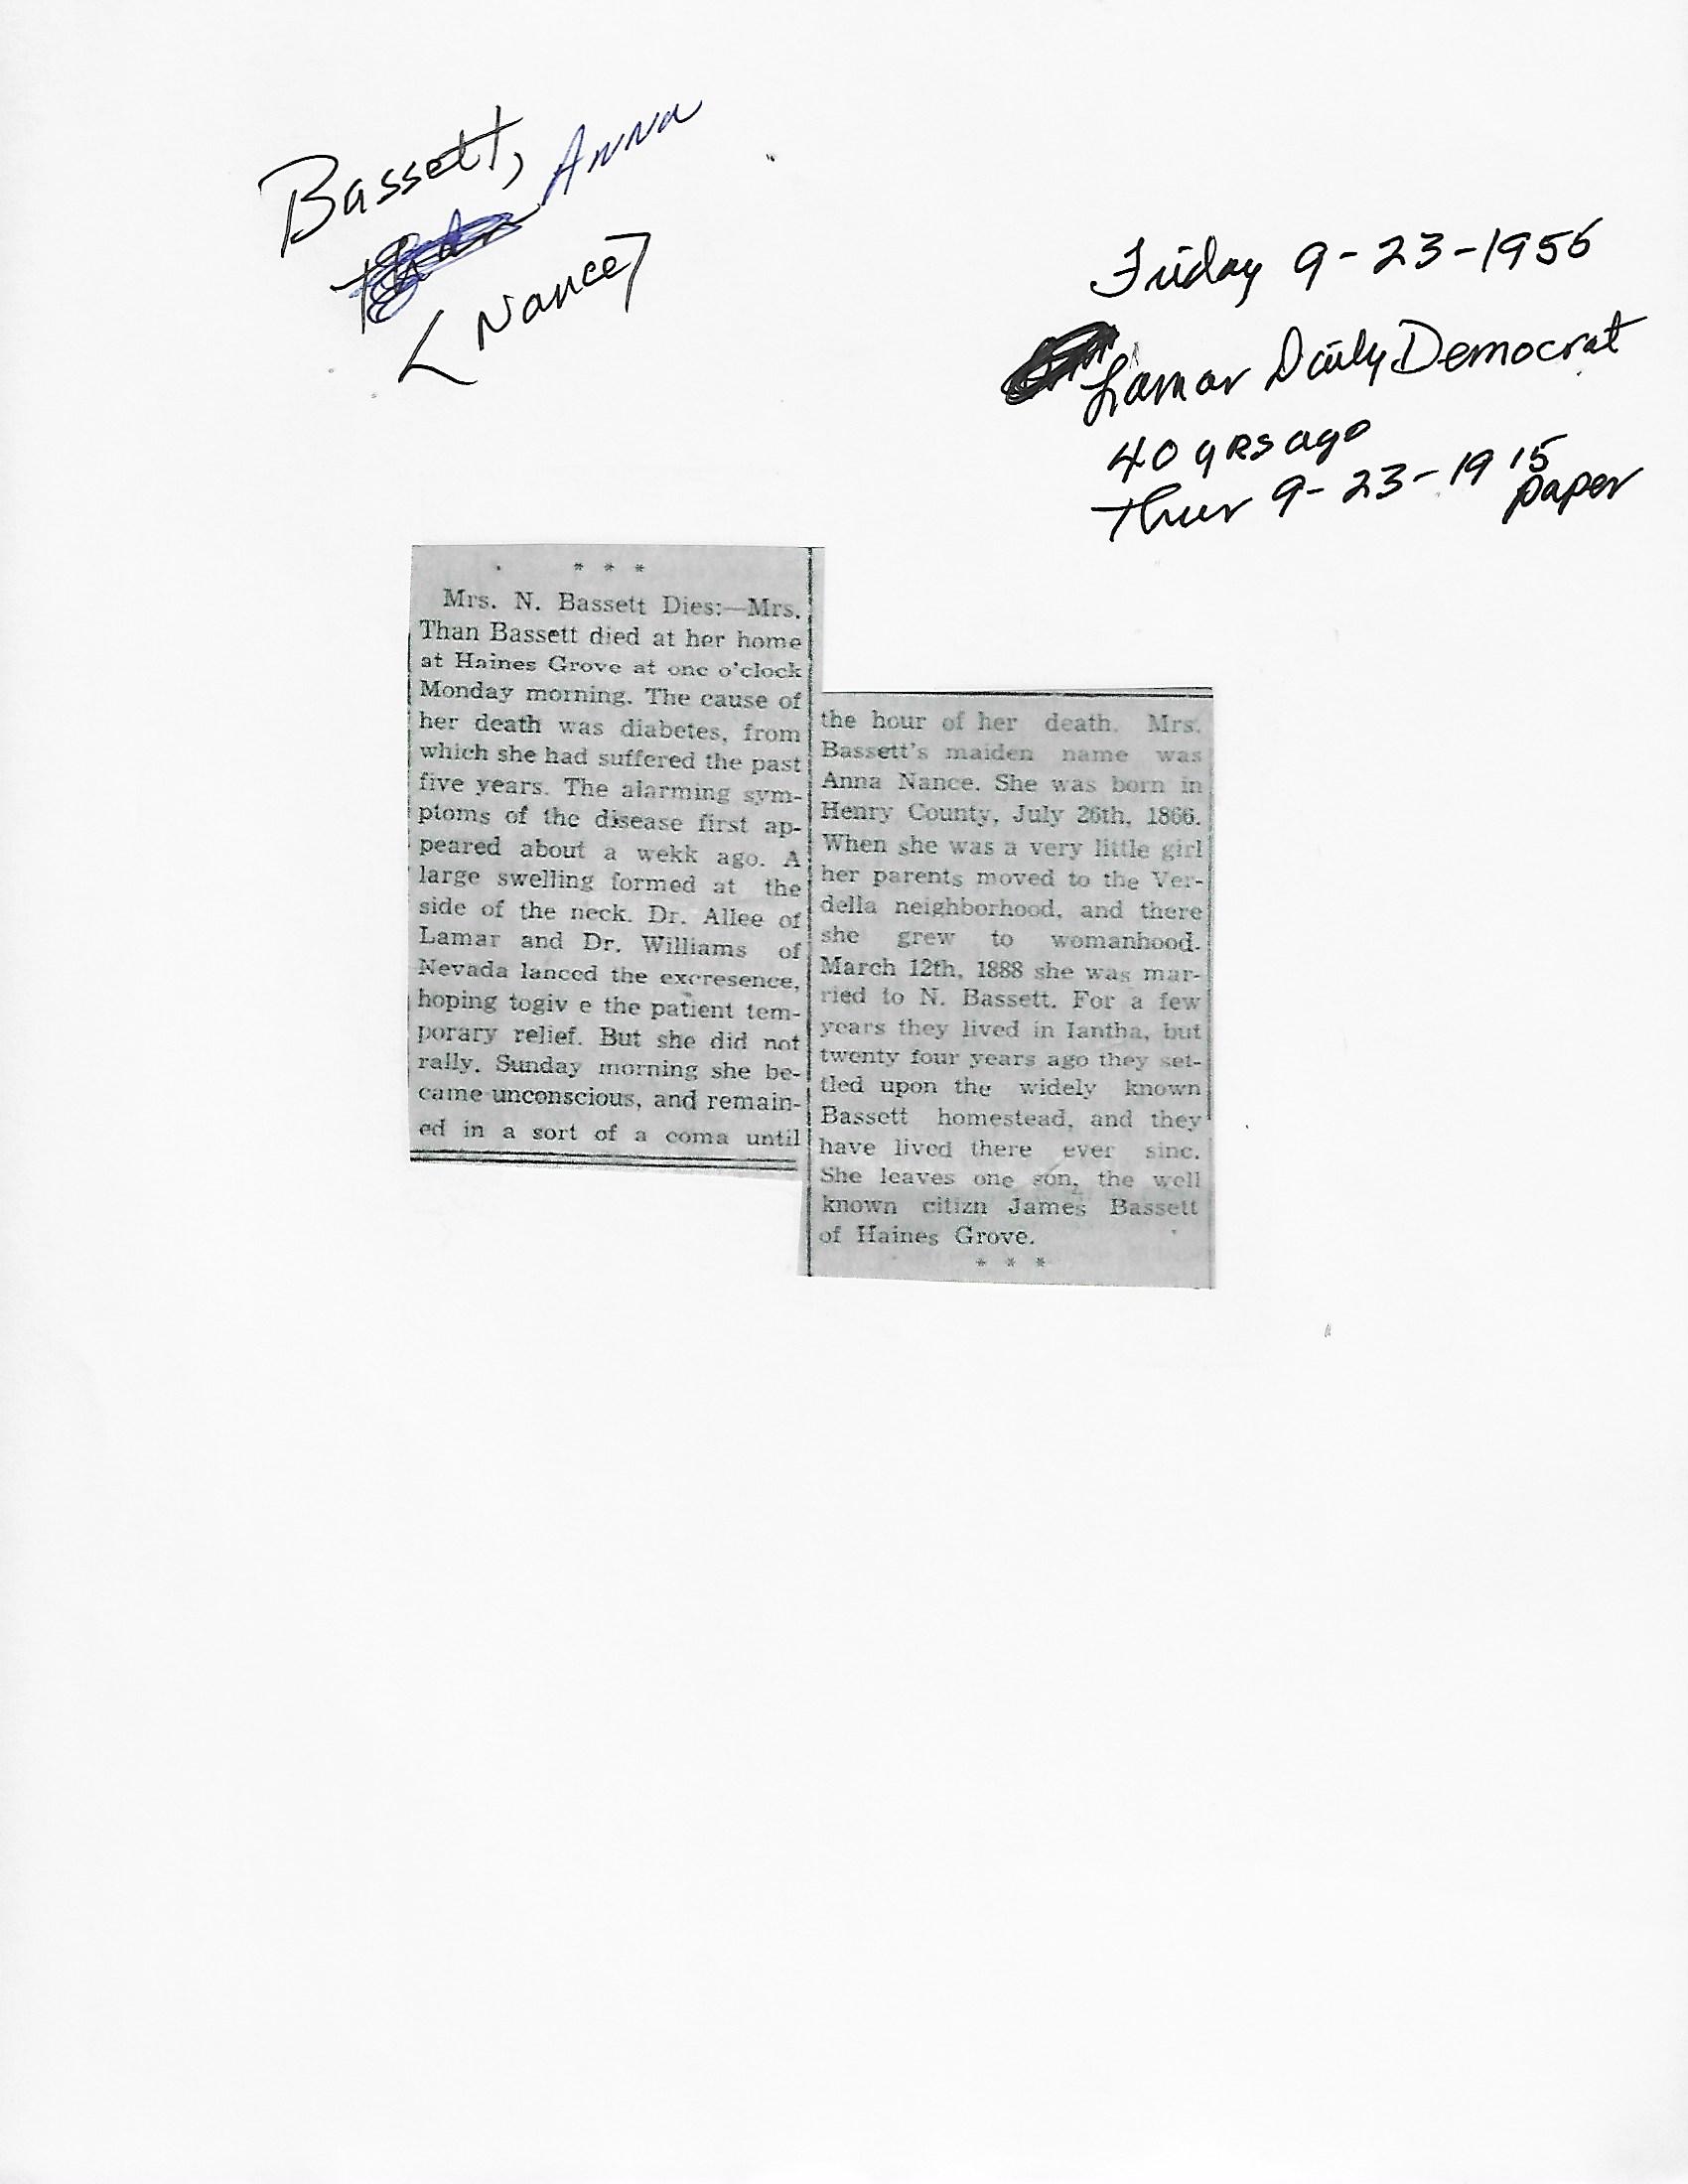 Bassett, Anna
<Nance>
Friday 9-23-1955
Lamar Daily Democrat
40 yrs ago
Thur 9-23-1915
paper
* * *
Mrs. N. Bassett Dies:—Mrs.
Than Bassett died at her home
at Haines Grove at one o'clock
Monday morning. The cause of
her death was diabetes, from
which she had suffered the past
five years. The alarming sym-
ptoms of the disease first ap-
peared about a wekk ago. A
large swelling formed at the
side of the neck. Dr. Allee of
Lamar and Dr. Williams of
Nevada lanced the excresence,
hoping togiv e the patient tem-
porary relief. But she did not
rally. Sunday morning she be-
came unconscious, and remain-
ed in a sort of a coma until
the hour of her death. Mrs.
Bassett's maiden name was
Anna Nance. She was born in
Henry County, July 26th, 1866.
When she was a very little girl
her parents moved to the Ver-
della neighborhood, and there
she grew to womanhood.
March 12th, 1888 she was mar-
ried to N. Bassett. For a few
years they lived in Iantha, but
twenty four years ago they set-
tled upon the widely known
Bassett homestead, and they
have lived there ever sinc.
She leaves one son, the well
known citizn James Bassett
of Haines Grove.
* * *